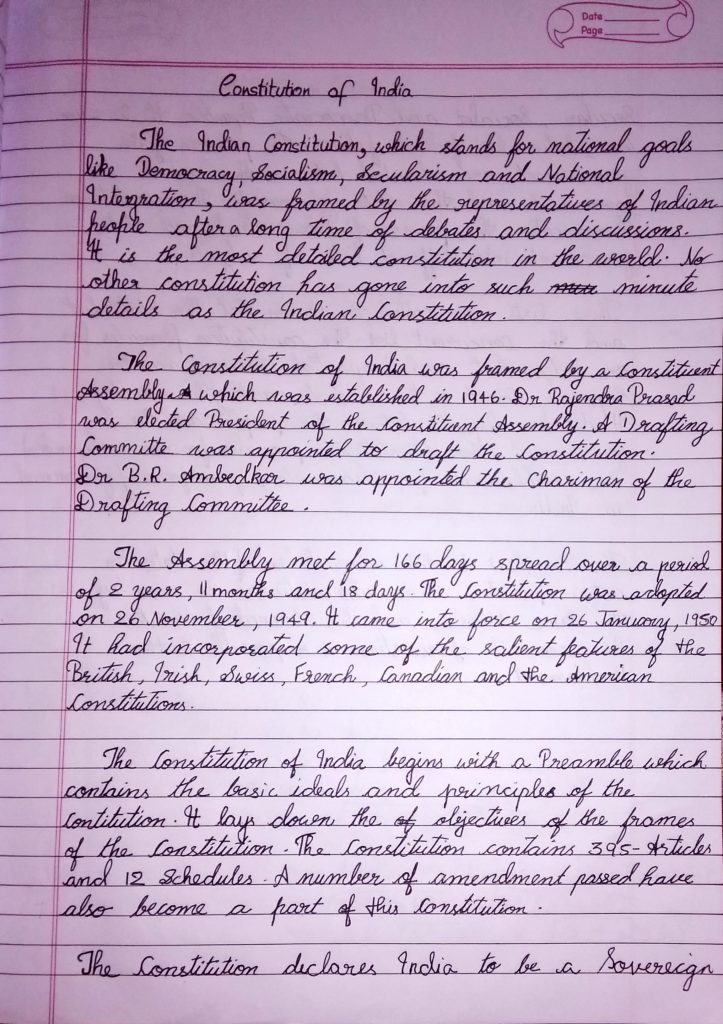 Date
Page
Constitution of India
The Indian Constitution, which stands for national goals
like Democracy, Socialism, Secularism and National
Intergration, was framed by the representatives of Indian
people after a long time of debates and discussions.
It is the most detailed constitution in the world. No
other constitution has gone into such minute
details as the Indian Constitution.
The Constitution of India was framed by a Constituent
Assembly which was established in 1946. Dr Rajendra Prasad
was elected President of the Constituent Assembly. A Drafting
Committe was appointed to draft the Constitution.
Dr B.R. Ambedkar was appointed the Chariman of the
Drafting Committee.
The Assembly met for 166 days spread over a period
of 2 years, 11 months and 18 days. The Constitution was adopted
on 26 November, 1949. It came into force on 26 January, 1950
It had incorporated some of the salient features of the
British, Irish, Swiss, French, Canadian and the American
Constitutions.
The Constitution of India begins with a Preamble which
contains the basic ideals and principles of the
Contitution. It lays down the objectives of the frames
of the Constitution. The Constitution contains 395-Articles
and 12 Schedules. A number of amendment passed have
also become a part of this Constitution.
The Constitution declares India to be a Sovereign